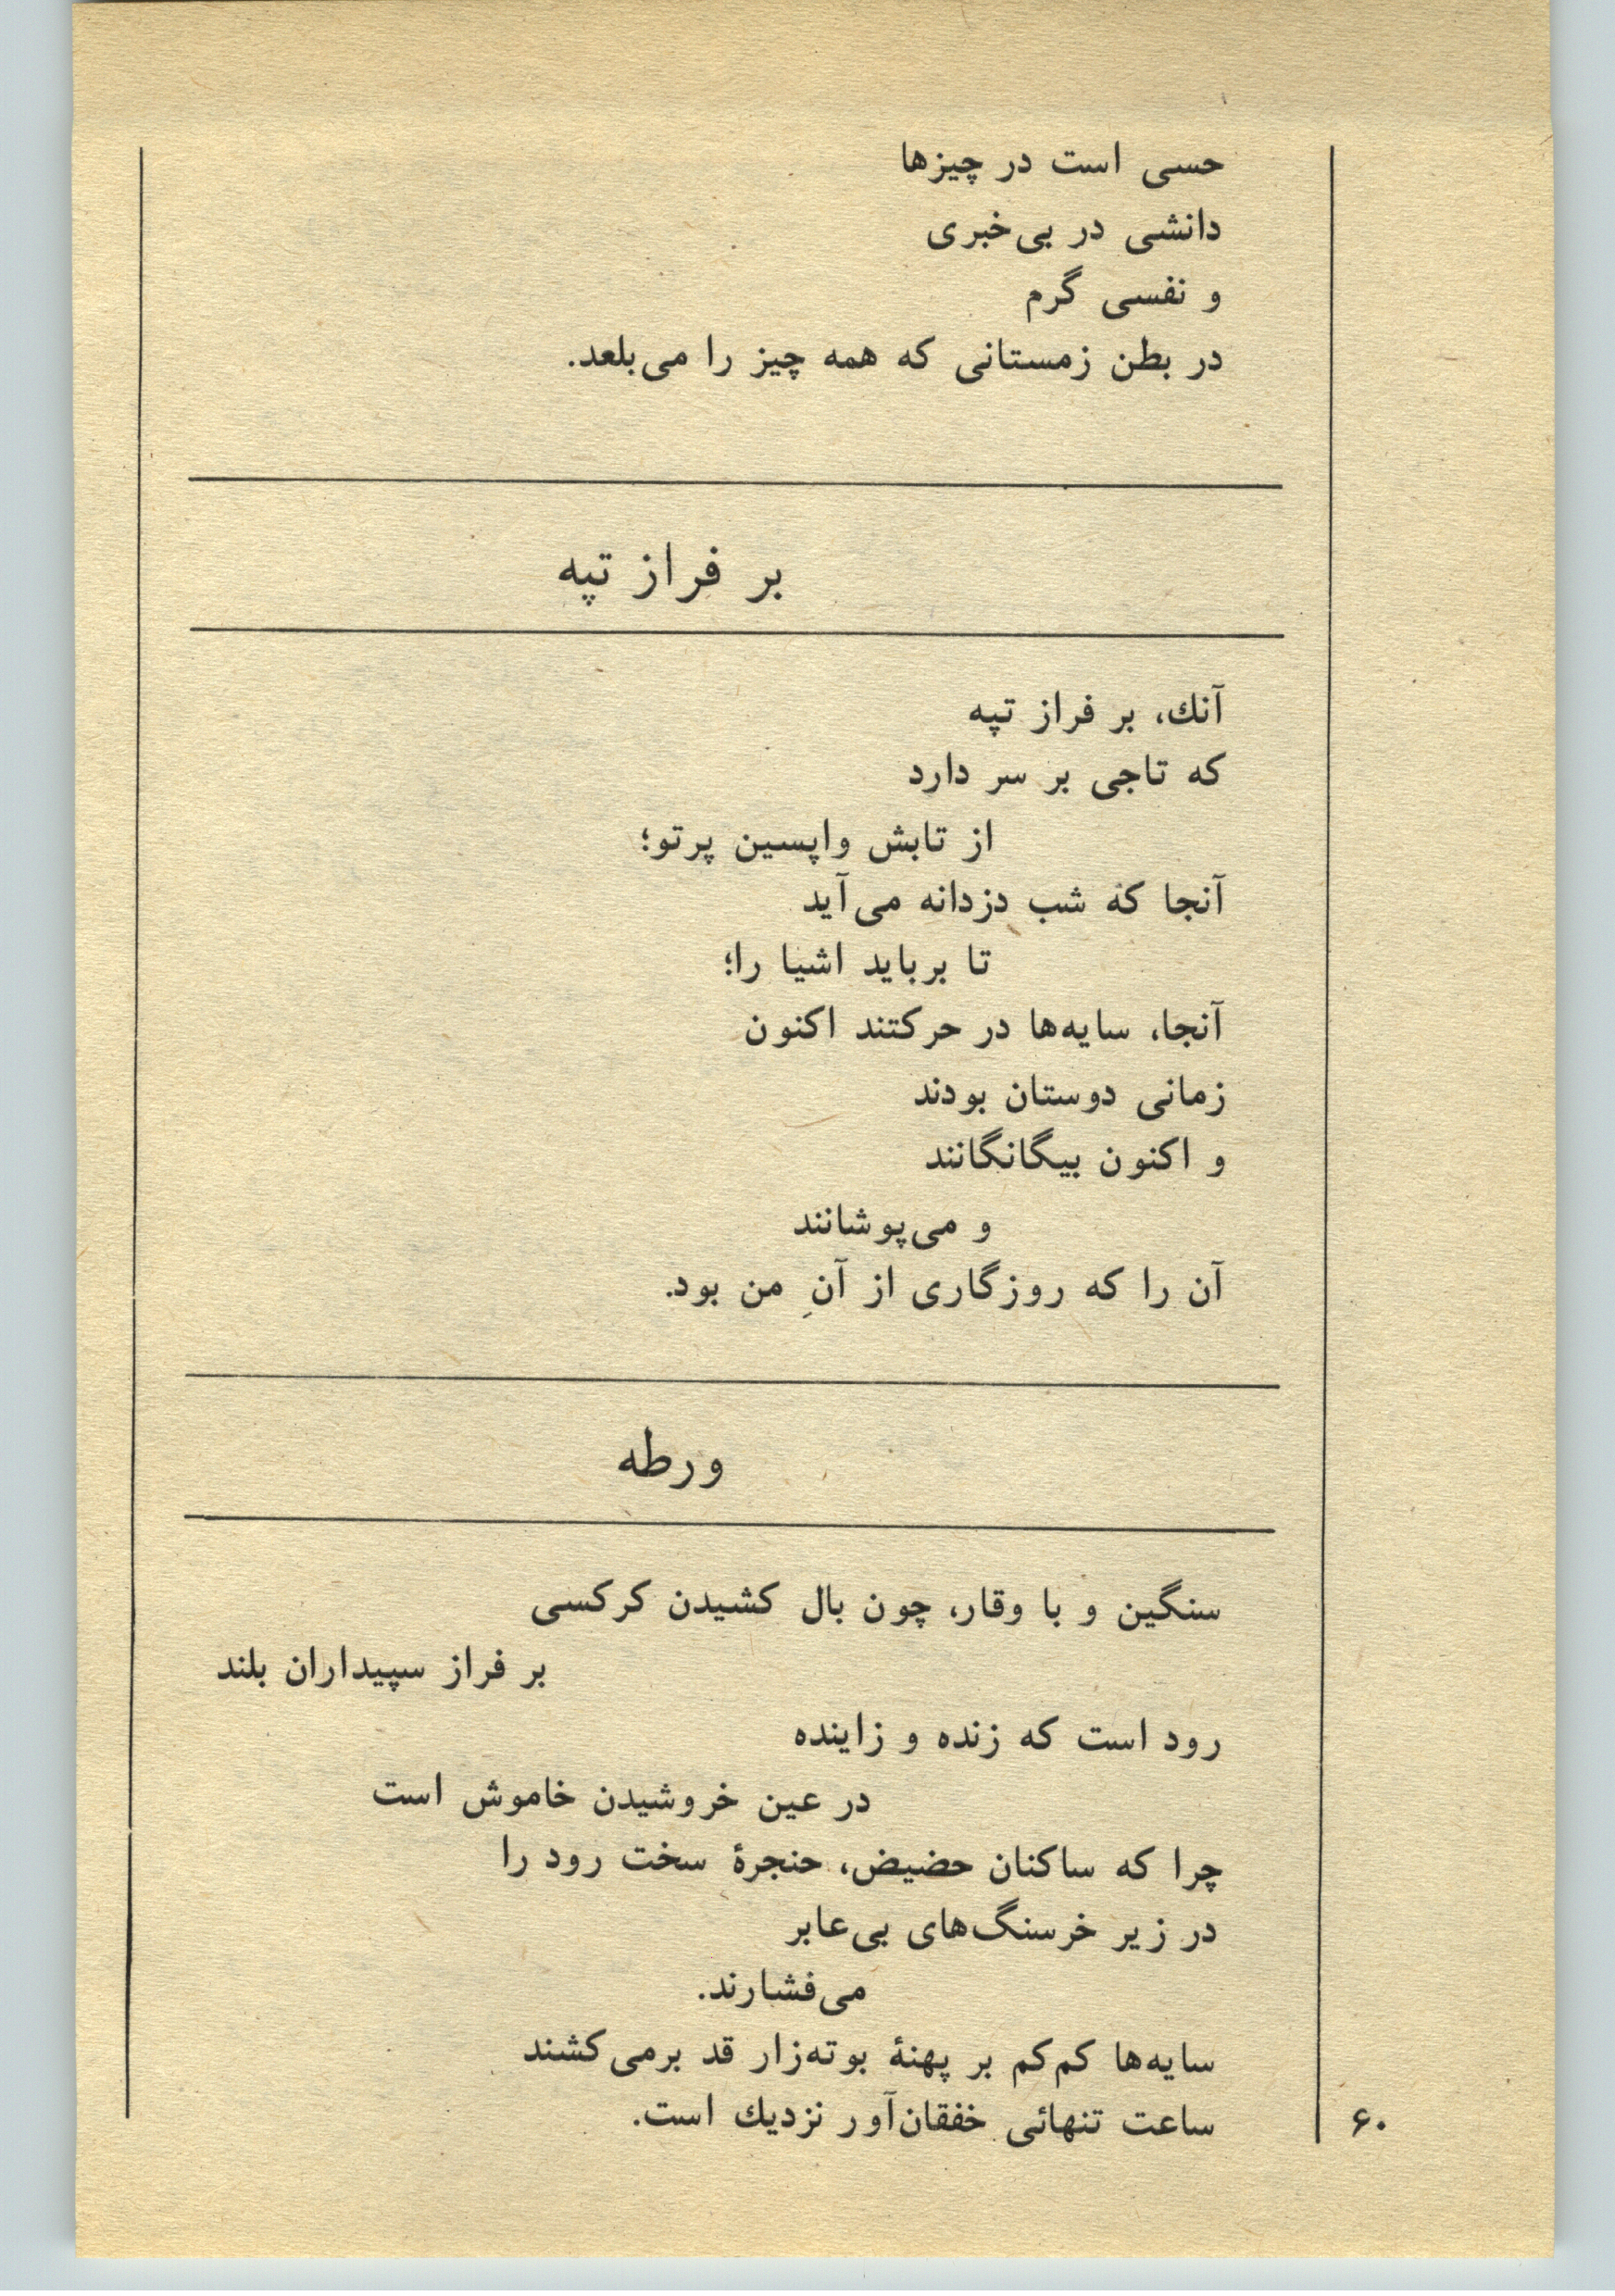 حسی است در چیزها
دانشی در بی‌خبری
و نفسی گرم
در بطن زمستانی که همه چیز را می‌بلعد.
بر فراز تپه
آنك، بر فراز تپه
که تاجی بر سر دارد
از تابش واپسین پرتو؛
آنجا که شب دزدانه می‌آید
تا برباید اشیا را؛
آنجا، سایه‌ها در حرکتند اکنون
زمانی دوستان بودند
و اکنون بیگانگانند
و می‌پوشانند
آن را که روزگاری از آنِ من بود.
ورطه
سنگین و با وقار، چون بال کشیدن کرکسی
بر فراز سپیداران بلند
رود است که زنده و زاینده
در عین خروشیدن خاموش است
چرا که ساکنان حضیض، حنجرهٔ سخت رود را
در زیر خرسنگ‌های بی‌عابر
می‌فشارند.
سایه‌ها کم‌کم بر پهنهٔ بوته‌زار قد برمی‌کشند
ساعت تنهائی خفقان‌آور نزدیك است.
۶۰